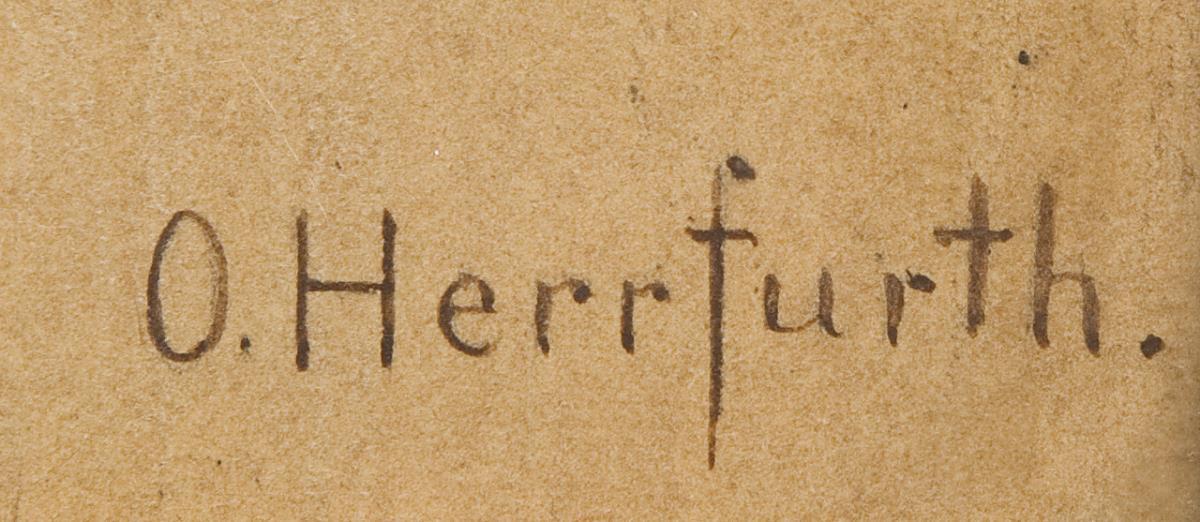 O. Herrfurth.